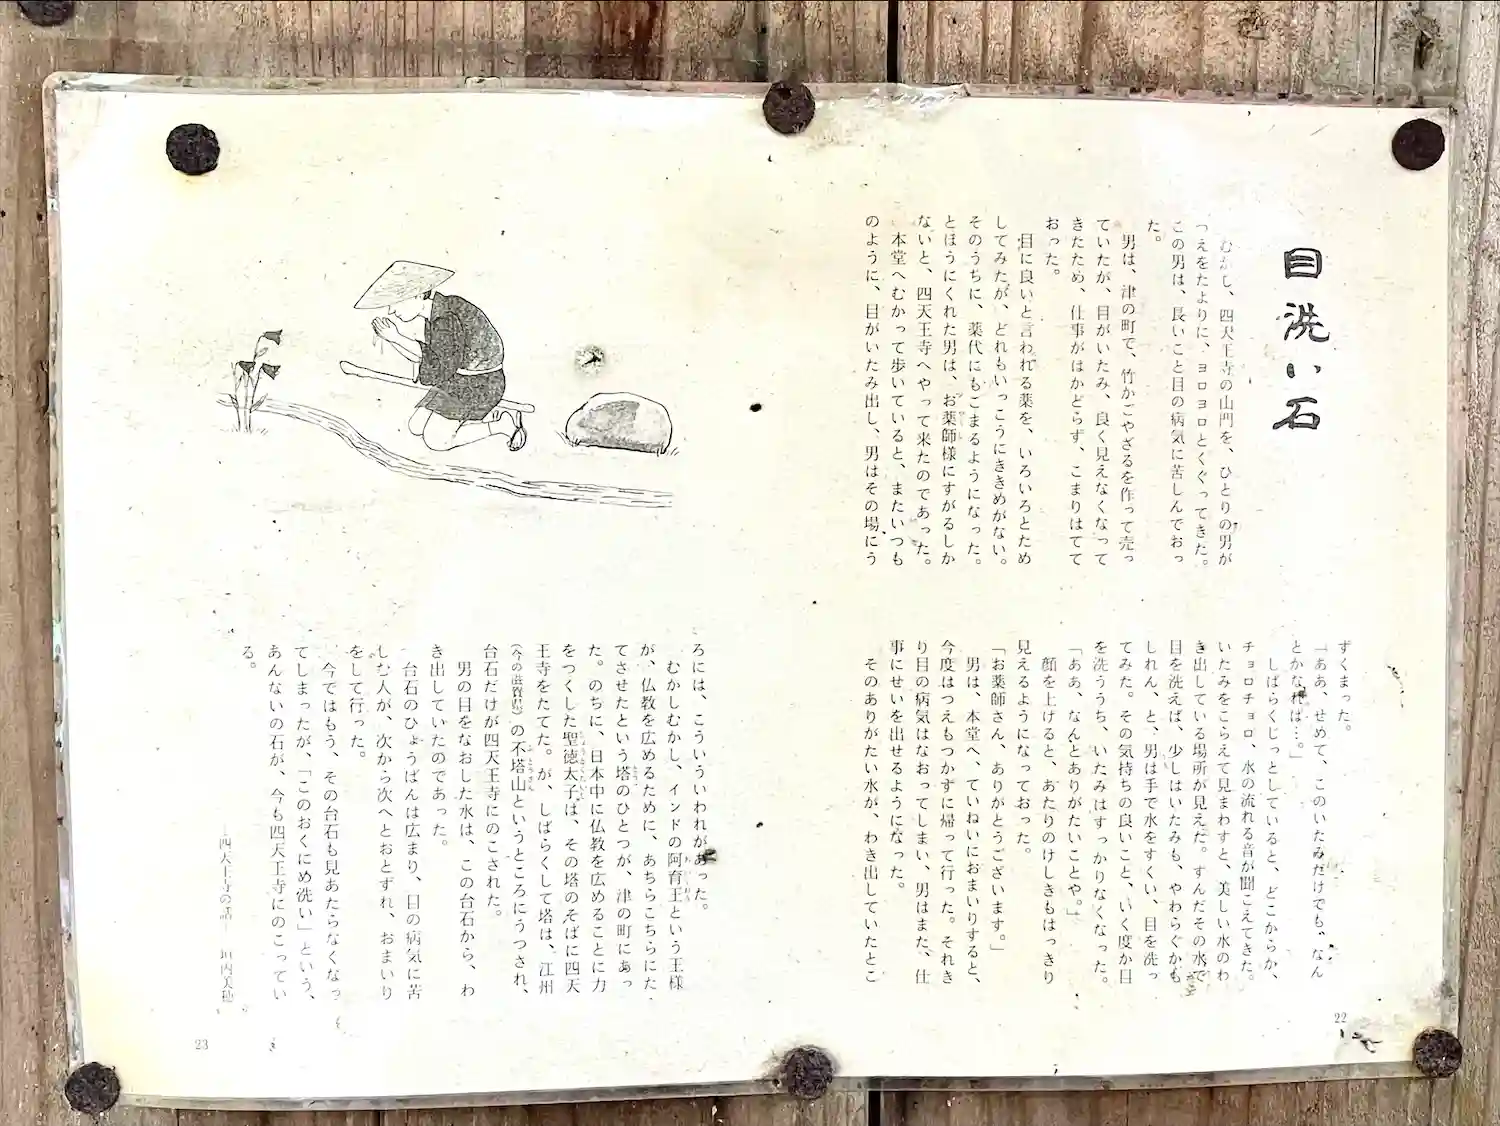 目洗い石
むかし、四天王寺の山門を、ひとりの男が
「つえをたよりに、ヨロヨロとくぐってきた。
この男は、長いこと目の病気に苦しんでおっ
た。
男は、津の町で、竹かごやざるを作って売っ
ていたが、目がいたみ、良く見えなくなって
きたため、仕事がはかどらず、こまりはてて
おった。
目に良いと言われる薬を、いろいろとため
してみたが、どれもいっこうにききめがない。
そのうちに、薬代にもこまるようになった。
とほうにくれた男は、お薬師様にすがるしか
ないと、四天王寺へやって来たのであった。
本堂へむかって歩いていると、またいつも
のように、目がいたみ出し、男はその場にう
ずくまった。
「ああ、せめて、このいたみだけでも、なん
とかなれば…。」
しばらくじっとしていると、どこからか、
チョロチョロ、水の流れる音が聞こえてきた。
いたみをこらえて見まわすと、美しい水のわ
き出している場所が見えた。すんだその水で
目を洗えば、少しはいたみも、やわらぐかも
しれん、と、男は手で水をすくい、目を洗っ
てみた。その気持ちの良いこと、いく度か目
を洗ううち、いたみはすっかりなくなった。
「ああ、なんとありがたいことや。」
顔を上げると、あたりのけしきもはっきり
見えるようになっておった。
「お薬師さん、ありがとうございます。」
男は、本堂へ、ていねいにおまいりすると、
今度はつえもつかずに帰って行った。それき
り目の病気はなおってしまい、男はまた、仕
事にせいを出せるようになった。
そのありがたい水が、わき出していたとこ
22
ろには、こういういわれがあった。
むかしむかし、インドの阿育王という王様
が、仏教を広めるために、あちらこちらにた
てさせたという塔のひとつが、津の町にあっ
た。のちに、日本中に仏教を広めることに力
をつくした聖徳太子は、その塔のそばに四天
王寺をたてた。が、しばらくして塔は、江州
(今の滋賀県)の不塔山というところにうつされ、
台石だけが四天王寺にのこされた。
男の目をなおした水は、この台石から、わ
き出していたのであった。
台石のひょうばんは広まり、目の病気に苦
しむ人が、次から次へとおとずれ、おまいり
をして行った。
今ではもう、その台石も見あたらなくなっ
てしまったが、「このおくにめ洗い」という、
あんないの石が、今も四天王寺にのこってい
る。
―四天王寺の話― 垣内美穂
23